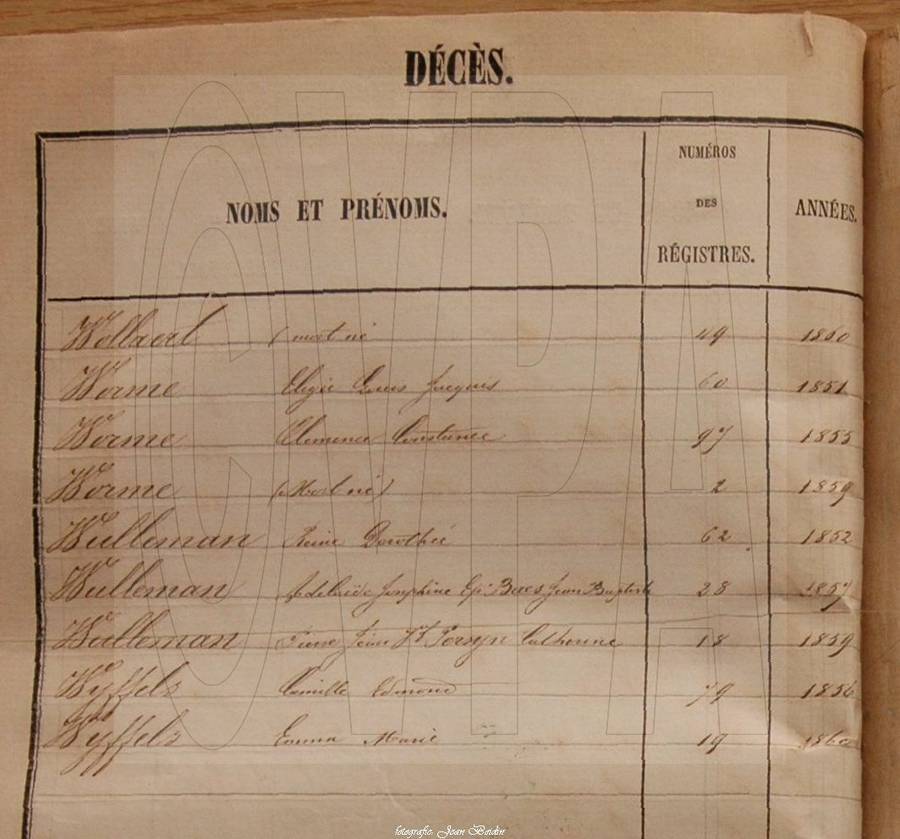 DÉCÈS.
NOMS ET PRÉNOMS. NUMÉROS DES RÉGISTRES. ANNÉES.
(mort né 49
Worme Louis 60 1851
Worme Clemence Constance 97 1855
Worme (Mort né) 2 1859
Wulleman Reine Dorothée 62 1852
Wulleman Adelaïde Josephine Ep: Baes Jean Baptiste 28 1857
Wulleman Jean Vf Persyn Catherine 18 1859
Wyffels Camille Edmond 79 1856
Wyffels Emma Marie 19 1860
CWPA
fotografie: Joan Beidin